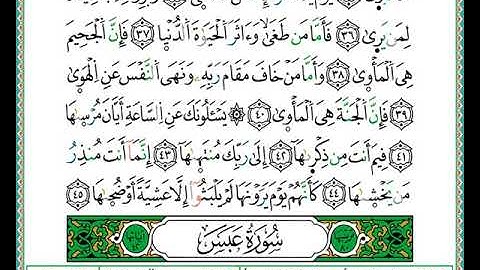 لِمَن يَرَىٰ ٣٦ فَأَمَّا مَن طَغَىٰ وَءَاثَرَ ٱلْحَيَاةَ ٱلدُّنْيَا ٣٧ فَإِنَّ ٱلْجَحِيمَ
هِىَ ٱلْمَأْوَىٰ ٣٨ وَأَمَّا مَنْ خَافَ مَقَامَ رَبِّهِ وَنَهَى ٱلنَّفْسَ عَنِ ٱلْهَوَىٰ
٣٩ فَإِنَّ ٱلْجَنَّةَ هِىَ ٱلْمَأْوَىٰ ٤٠ ۞ يَسْئَلُونَكَ عَنِ ٱلسَّاعَةِ أَيَّانَ مُرْسَىٰهَا
٤١ فِيمَ أَنتَ مِن ذِكْرَىٰهَا ٤٢ إِلَىٰ رَبِّكَ مُنتَهَىٰهَا ٤٣ إِنَّمَا أَنتَ مُنذِرُ
مَن يَخْشَىٰهَا ٤٤ كَأَنَّهُمْ يَوْمَ يَرَوْنَهَا لَمْ يَلْبَثُوا إِلَّا عَشِيَّةً أَوْ ضُحَىٰهَا ٤٥
سُورَةُ عَبَسَ